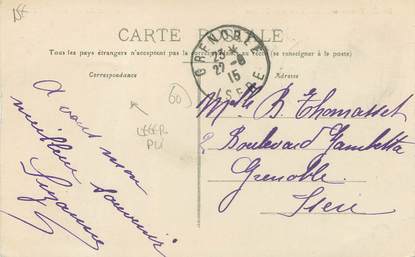 15€
CARTE POSTALE
Tous les pays étrangers n'acceptent pas la correspondance au recto (se renseigner à la poste)
Correspondance
Adresse
GRENOBLE
23 *
22 - 8
15
ISERE
60
LEGER
PLI
A vous mon
meilleur souvenir
Suzanne
Mlle B. Thomasset
2 Boulevard Gambetta
Grenoble
Isère